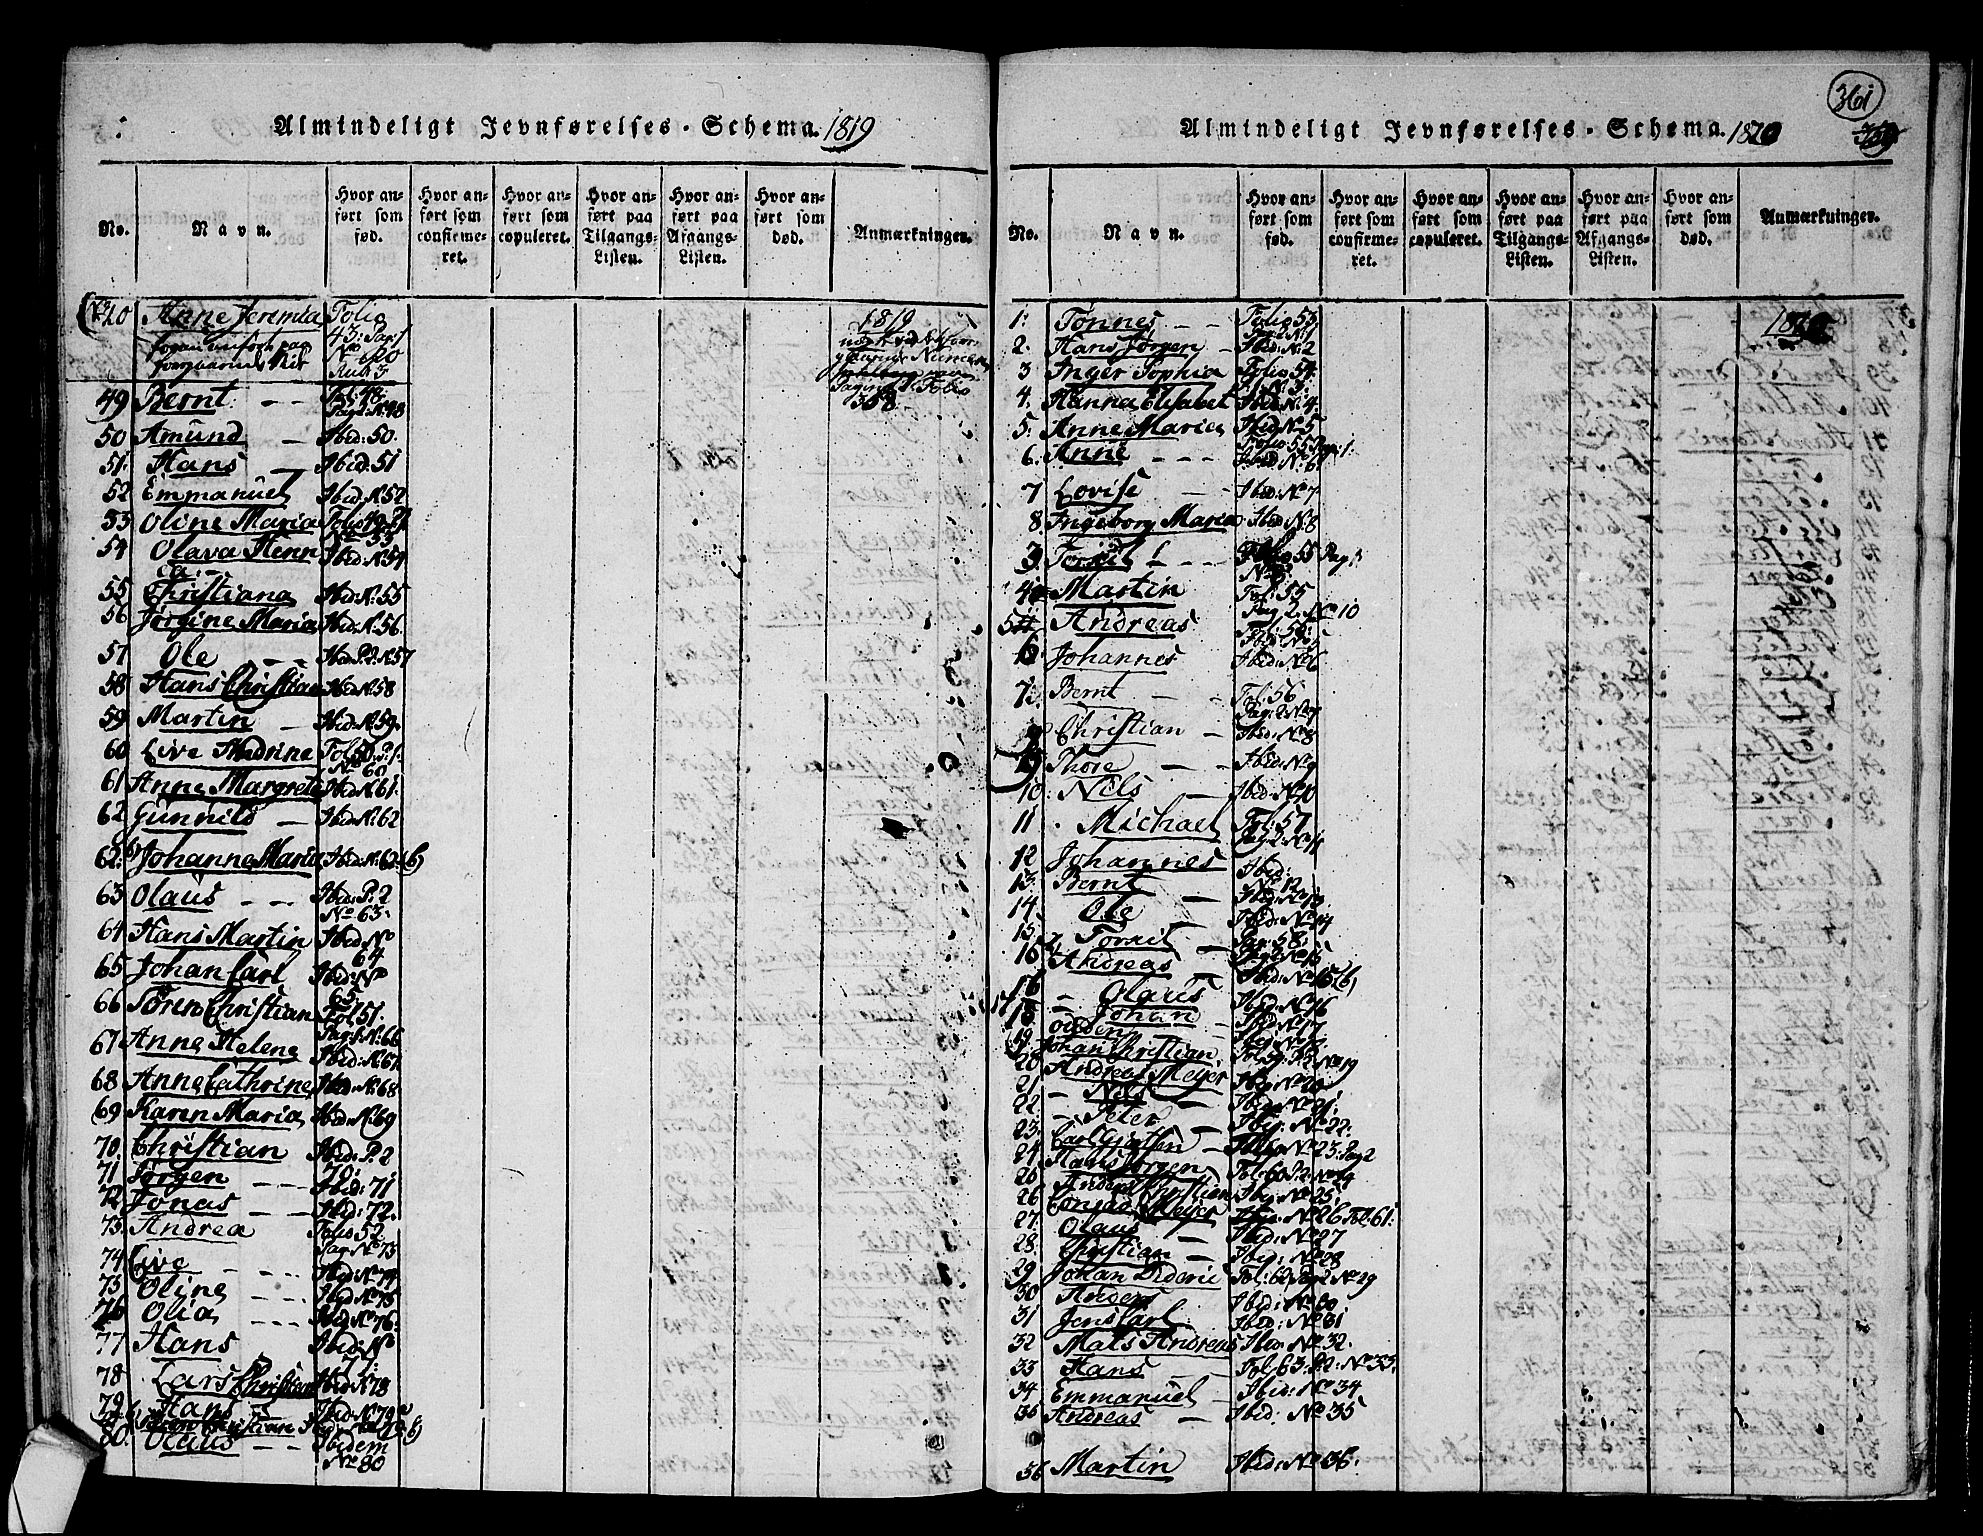 Almindeligt Jevnførelses-Schema. 1819
No.
Navn.
Hvor anført som fød.
Hvor anført som confirmeret.
Hvor anført som copuleret.
Hvor anført paa Tilgangs-Listen.
Hvor anført paa Afgangs-Listen.
Hvor anført som død.
Anmærkninger.
No 20 Anne Jeremia Folio 43: Pag: 1 No 20 1819
49 Bernt Fol: 48 Pag 2 No 48
50 Amund Ibid: 50.
51 Hans Ibid: 51
52 Emmanuel Ibid: No 52
53 Oline Maria Folio 49 P: 1 No 53
54 Olava Henn Ibid: No 54
55 Christiana Ibid: No 55
56 Jørgine Maria Ibid: No 56.
57 Ole Ibid: P. 2. No 57
58 Hans Christian Ibid No 58
59 Martin Ibid: No 59.
60 Live Madrine Fol 50: P: 1. No 60
61 Anne Margrete Ibid No 61.
62 Gunnild Ibid No 62
62 b) Johanne Maria Ibid: No 62 (b)
63 Olaus Ibid: P: 2 No 63.
64 Hans Martin Ibid No 64
65 Johan Carl Ibid: No 65
66 Søren Christian Fol 51. Pag: 1 No: 66
67 Anne Helene Ibid: No 67
68 Anne Cathrine Ibid: No 68
69 Karen Maria Ibid: No 69
70 Christian Ibid: P. 2 70:
71 Jørgen Ibid: 71
72 Jonas Ibid: 72.
73 Andrea Folio 52 Pag: No 73
74 Live Ibid No 74
75 Oline Ibid No 75
76 Olia Ibid: No 76
77 Hans Ibid: No 77:
78 Lars Christian Ibid No 78
79 Hans Ibid: No 79 a
80 Olaus Ibidem No 80
361
359
Almindeligt Jevnførelses-Schema. 1820
No.
Navn.
Hvor anført som fød.
Hvor anført som confirmeret.
Hvor anført som copuleret.
Hvor anført paa Tilgangs-Listen.
Hvor anført paa Afgangs-Listen.
Hvor anført som død.
Anmærkninger.
1: Tønnes Folio 53 1820
2. Hans Jørgen Ibid: No 2
3 Inger Sophia Folio 54
4. Hanna Elisabet Ibid No 4.
5: Anne Maria Ibid No 5
6. Anne Folio 55 Pag: 1: Ibid: No 6
7 Lovise Ibid: No 7
8 Ingeborg Maria Ibid No 8
3 Torkil Folio 55 Pag:
4 Martin Fol: 55 Pag 2. No 10
5 Andreas
6 Johannes Ibid: No 6
7: Bernt Fol: 56 Pag: 2 No 7
Christian Ibid: No 8
Thore Ibid: No 9
10 Nils Ibid: No 10
11 Michael Fol: 57 Pag 2: No 11
12 Johannes Ibid: No 12
13 Bernt Ibid: No 13
14 Ole Ibid: No 14
15 Torkil Pag: 58: Pag 2 No 15
16 Andreas Ibid: No 15 (b)
16 Olaus Ibid: No 16
18 Johan Ibid: No 17
19 Johan Christian Fol 59: P 2 No 19
20 Andreas Meyer Ibid: No 20
21 Nils Ibid: No 21:
22 Peter Ibid: No 22:
23 No 23: Pag 2
24 Hans Jørgen Fol: 60 P 2 No 24
Anders Christian Ibid: No 25
26 Conrad Meyer No 26 Fol: 61:
27 Olaus Ibid: No 27
28 Christian Ibid: No 28
29 Johan Dideric Fol: 62 Pag 2 No 29
30 Anders Ibid: No 30
31 Jens Carl Ibid: No 31
32 Mats Andreas Ibid: No 32.
33 Hans Fol: 63: P: 2: No 33:
34 Emmanuel Ibid: No 34
35 Andreas Ibid: No 35
36 Martin Ibid: No 36: